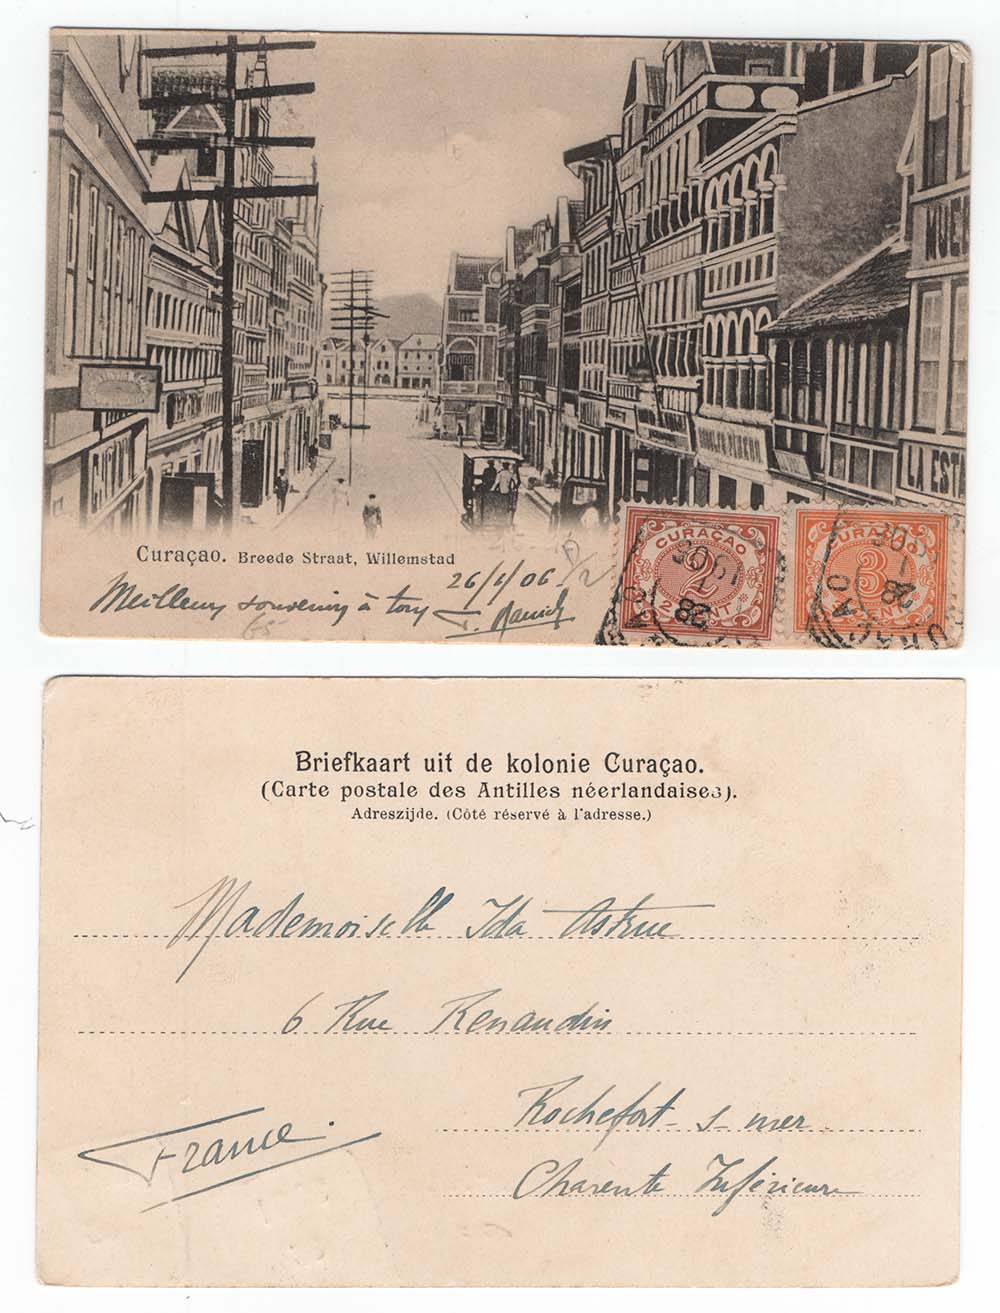 NUE
LA ESTR
HOTEL
Curaçao. Breede Straat, Willemstad
26/1/06
Meilleurs souvenirs à tous
65
1/2
CURAÇAO
2
2 CENT
CURAÇAO
3
CENT
28
1
1906
28
1906
Briefkaart uit de kolonie Curaçao.
(Carte postale des Antilles néerlandaises).
Adreszijde. (Côté réservé à l'adresse.)
Mademoiselle Ida Astrue
6 Rue Renaudin
Rochefort-s-mer
Charente Inférieure
France.